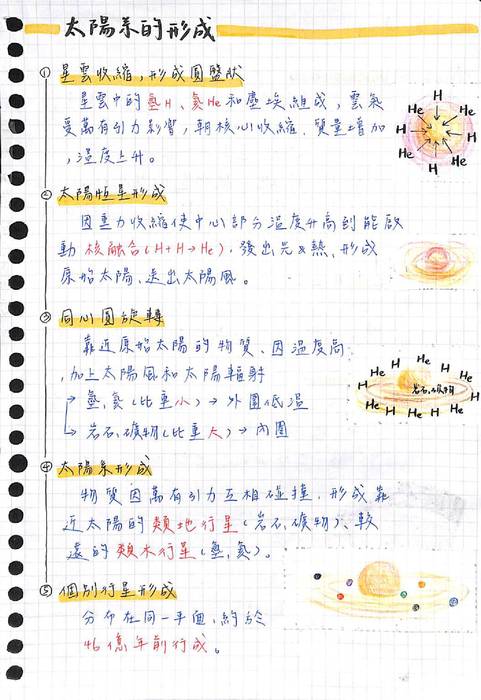 太陽系的形成
① 星雲收縮,形成圓盤狀
星雲中的氫H、氦He和塵埃組成,雲氣
受萬有引力影響,朝核心收縮、質量增加
,溫度上升。
H
He He
H H
H He
He H
② 太陽恆星形成
因重力收縮使中心部分溫度升高到能啟
動核融合(H+H→He),發出光&熱,形成
原始太陽,送出太陽風。
③ 同心圓旋轉
靠近原始太陽的物質、因溫度高
,加上太陽風和太陽輻射
→ 氫,氦(比重小)→外圍低溫
→ 岩石,礦物(比重大)→內圍
He H He H He
H H
岩石,礦物
He H He H He H
④ 太陽系形成
物質因萬有引力互相碰撞,形成靠
近太陽的類地行星(岩石,礦物)、較
遠的類木行星(氫,氦)。
⑤ 個別行星形成
分布在同一平面,約於
46億年前行成。